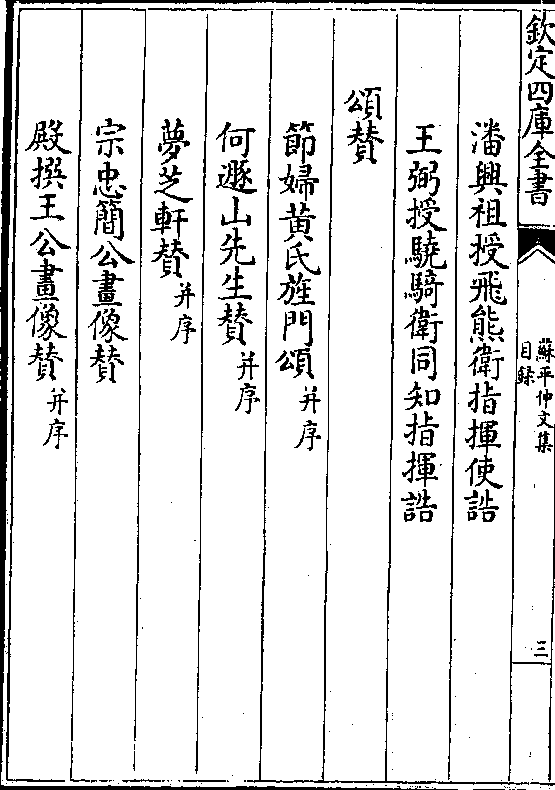 欽定四庫全書
蘇平仲文集
目録
三
潘興祖授飛熊衛指揮使誥
王弼授驍騎衛同知指揮誥
頌賛
節婦黄氏旌門頌并序
何遯山先生賛并序
夢芝軒賛并序
宗忠簡公畫像賛
殿撰王公畫像賛并序